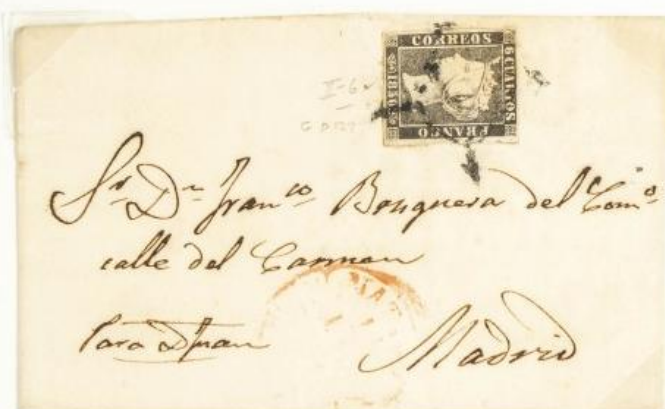 CORREOS
6 CUARTOS
1850
FRANCO
I-6
Sr. Dn. Franco Bosquera del Como
calle del Carmen
Para DJuan
Madrid